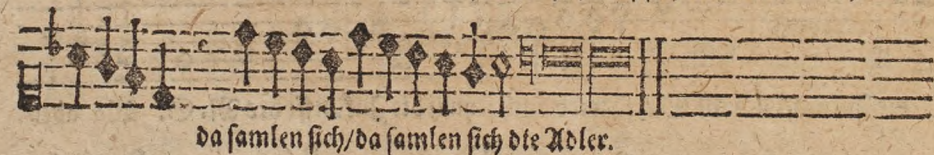 da ſamlen ſich/da ſamlen ſich dte Adler.